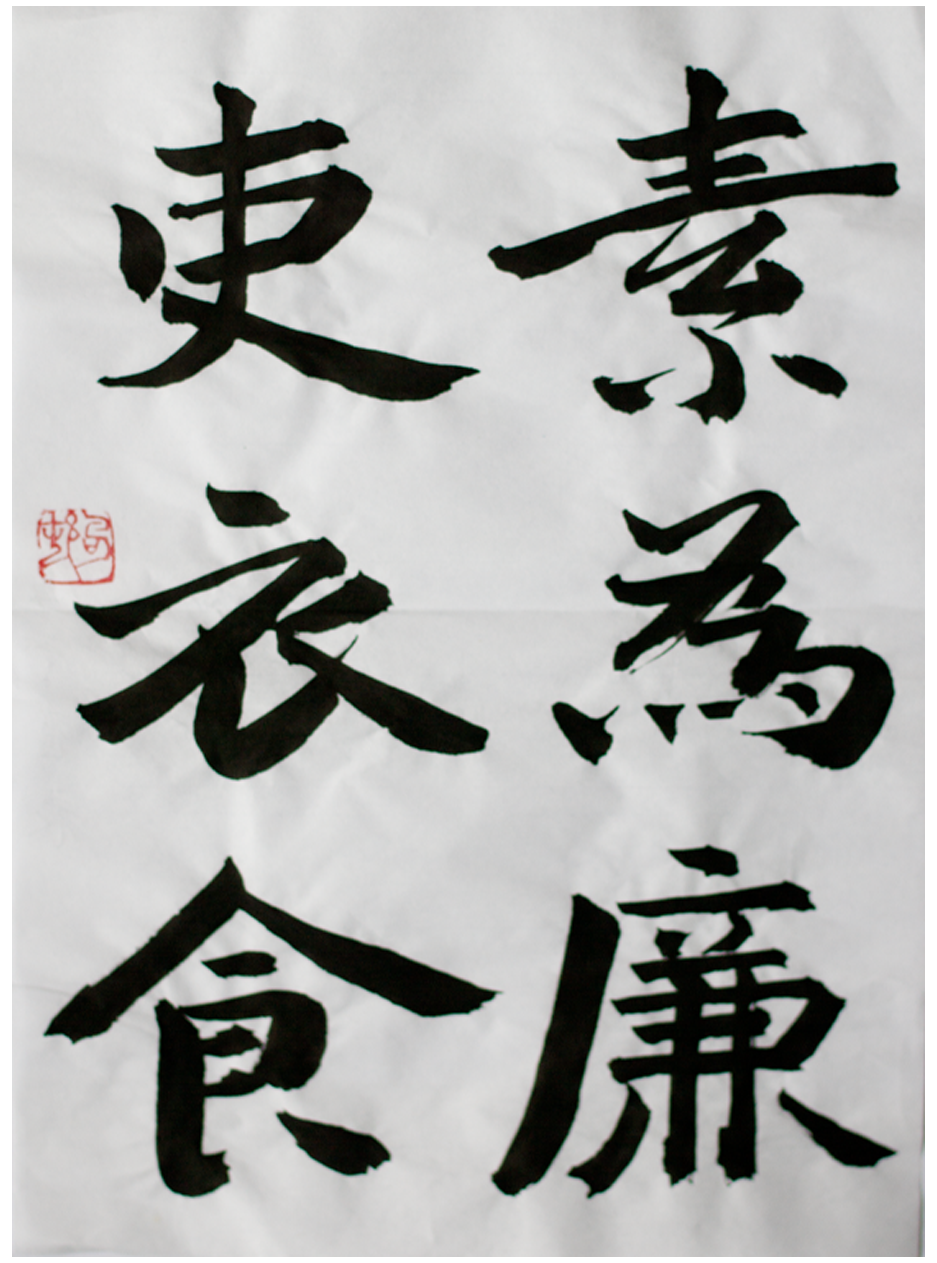 素為廉
吏衣食